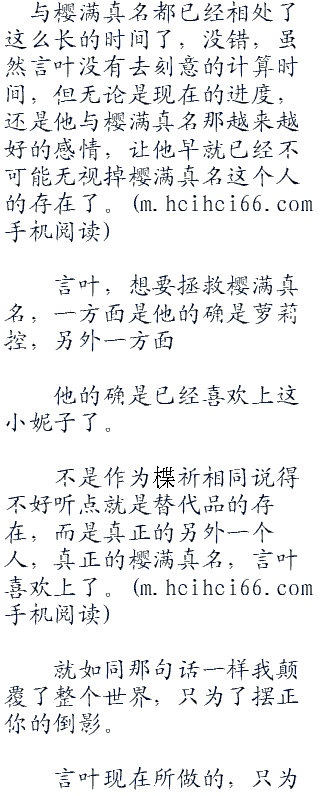 与樱满真名都已经相处了
这么长的时间了，没错，虽
然言叶没有去刻意的计算时
间，但无论是现在的进度，
还是他与樱满真名那越来越
好的感情，让他早就已经不
可能无视掉樱满真名这个人
的存在了。(m.hcihci66.com
手机阅读)
言叶，想要拯救樱满真
名，一方面是他的确是萝莉
控，另外一方面
他的确是已经喜欢上这
小妮子了。
不是作为楪祈相同说得
不好听点就是替代品的存
在，而是真正的另外一个
人，真正的樱满真名，言叶
喜欢上了。(m.hcihci66.com
手机阅读)
就如同那句话一样我颠
覆了整个世界，只为了摆正
你的倒影。
言叶现在所做的，只为